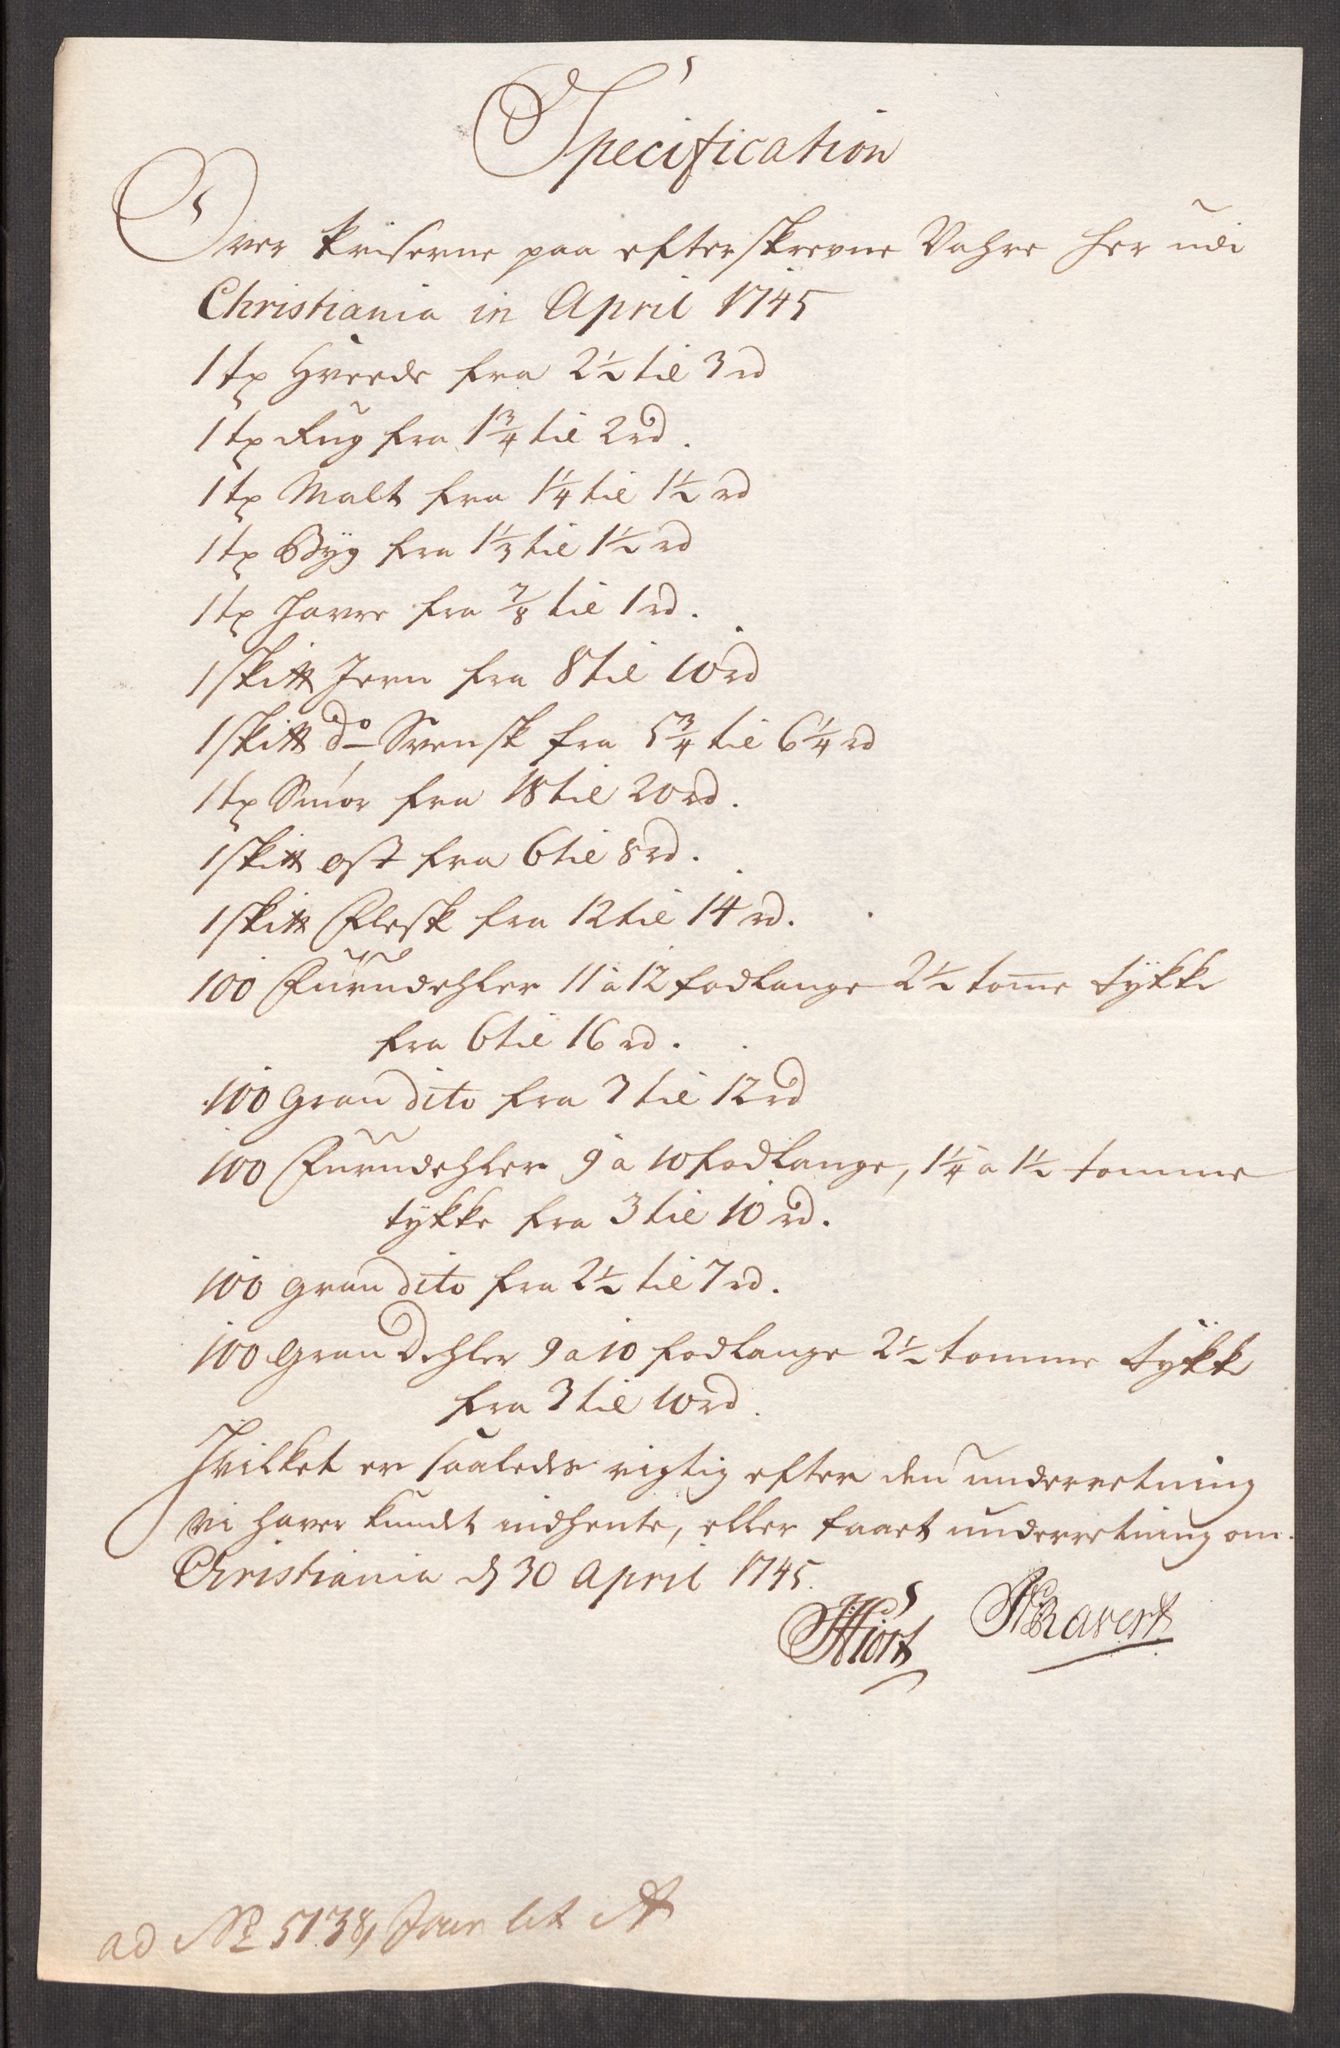 Specification
Over Priserne paa efterskrevne Vahre her udi
Christiania in April 1745
1 tr Hvede fra 2½ til 3 rd
1 tr Rug fra 1¾ til 2 rd.
1 tr Malt fra 1¼ til 1½ rd
1 tr Byg fra 1⅓ til 1½ rd
1 tr Havre fra ⅞ til 1 rd.
1 sk℔ Jern fra 8 til 10 rd
1 sk℔ do Svensk fra 5¾ til 6¼ rd
1 tr Smør fra 18 til 20 rd.
1 sk℔ ost fra 6 til 8 rd.
1 sk℔ Flesk fra 12 til 14 rd.
100 Furudehler 11 a 12 fodlange 2½ tome tykke
fra 6 til 16 rd.
100 Gran dito fra 3 til 12 rd
100 Furudehler 9 a 10 fodlange, 1¼ a 1½ tomme
tykke fra 3 til 10 rd.
100 gran dito fra 2½ til 7 rd.
100 Gran Dehler 9 a 10 fodlange 2½ tomme tykke
fra 3 til 10 rd.
Hvilket er saaledes rigtig efter den underretning
vi haver kundt indhente, eller faaet underretning om.
Christiania d 30 April 1745.
Hiort Ravert
ad No 5138, Jour lit A